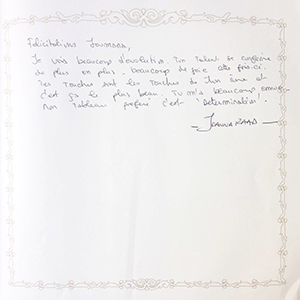 Félicitations Joumana,
Je vois beaucoup d'évolution. Ton talent se confirme
de plus en plus. beaucoup de joie cette fois-ci.
Tes touches sont les touches de ton âme et
c'est ça le plus beau. Tu m'as beaucoup émue.
Mon tableau préféré c'est "Détermination"!
Joanna RAAD